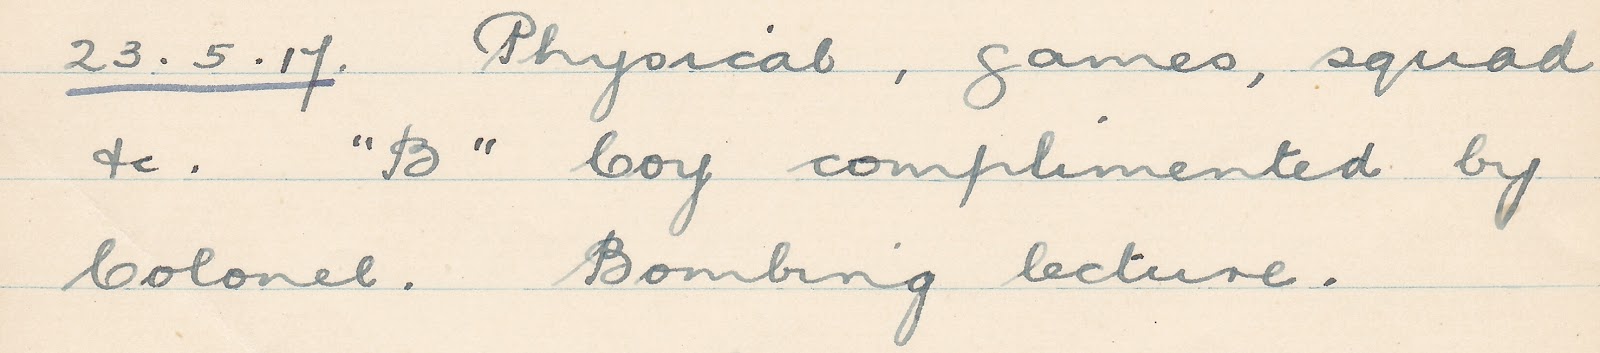 23.5.17. Physical, games, squad
&c. "B" Coy complimented by
Colonel. Bombing lecture.